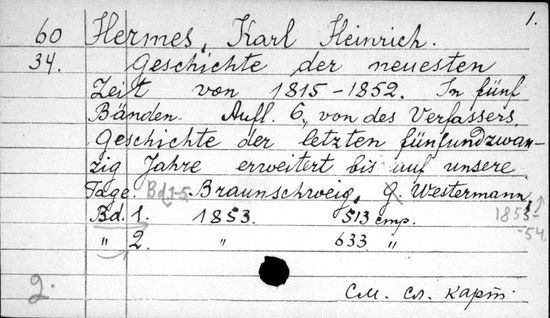 1.
60 Hermes, Karl Heinrich.
34. Geschichte der neuesten
Zeit von 1815-1852. In fünf
Bänden. Aufl. 6, von des Verfassers
Geschichte der letzten fünfundzwan-
zig Jahre erweitert bis auf unsere
Tage. Bd 1-5. Braunschweig, G. Westermann,
1853-54.
Bd. 1. 1853. 513 стр.
" 2. " 633 "
2.
См. сл. карт.